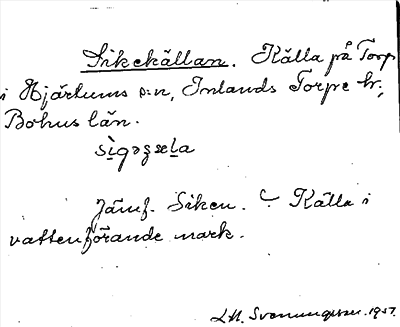 Sikekällan. Källa på Torp
i Hjärtums s:n, Inlands Torpe hr,
Bohus län.
Jämf. Siken. Källa i
vattenförande mark.
Svenungsson. 1957.